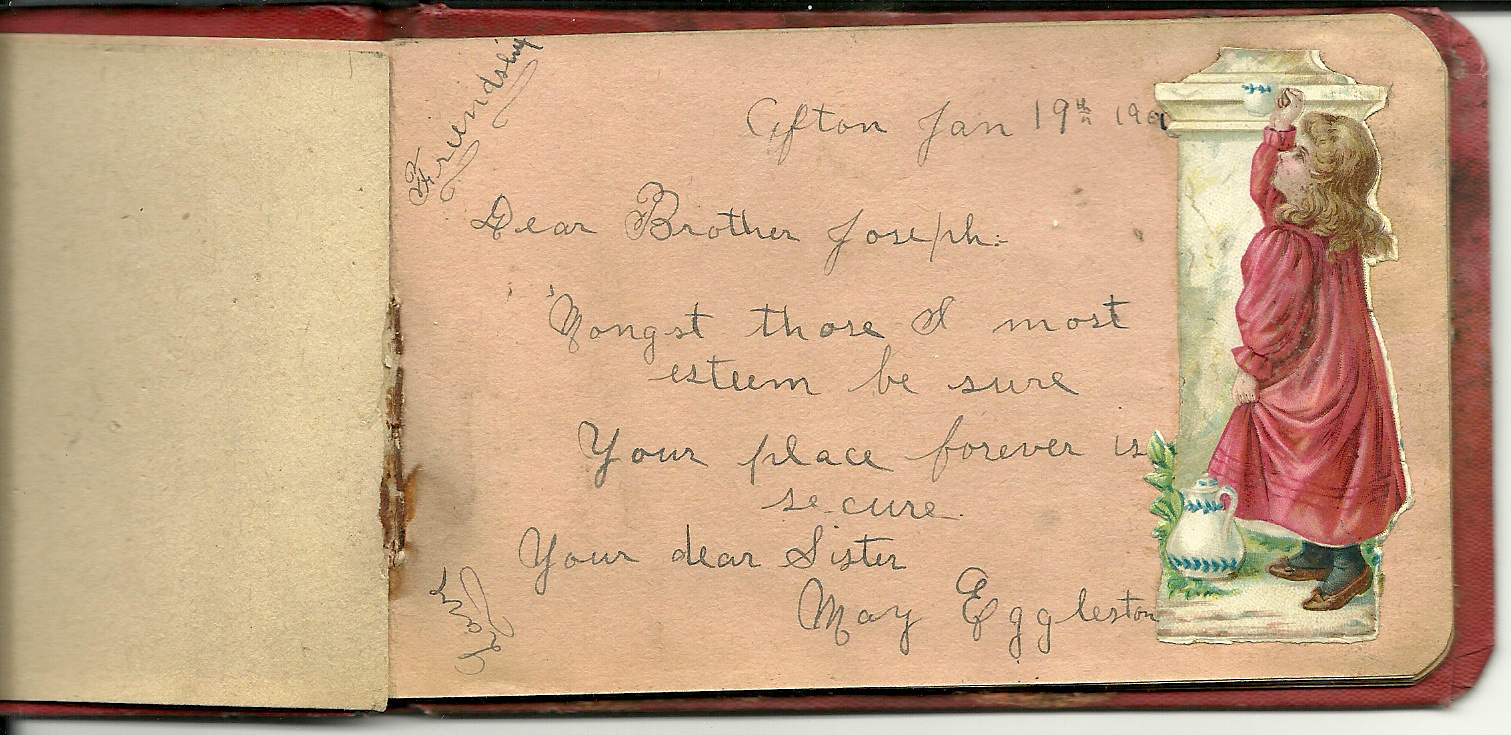 Friendship
Afton Jan 19th
Dear Brother Joseph:-
'Mongst those I most
esteem be sure
Your place forever is
secure.
Your dear Sister
May Eggleston